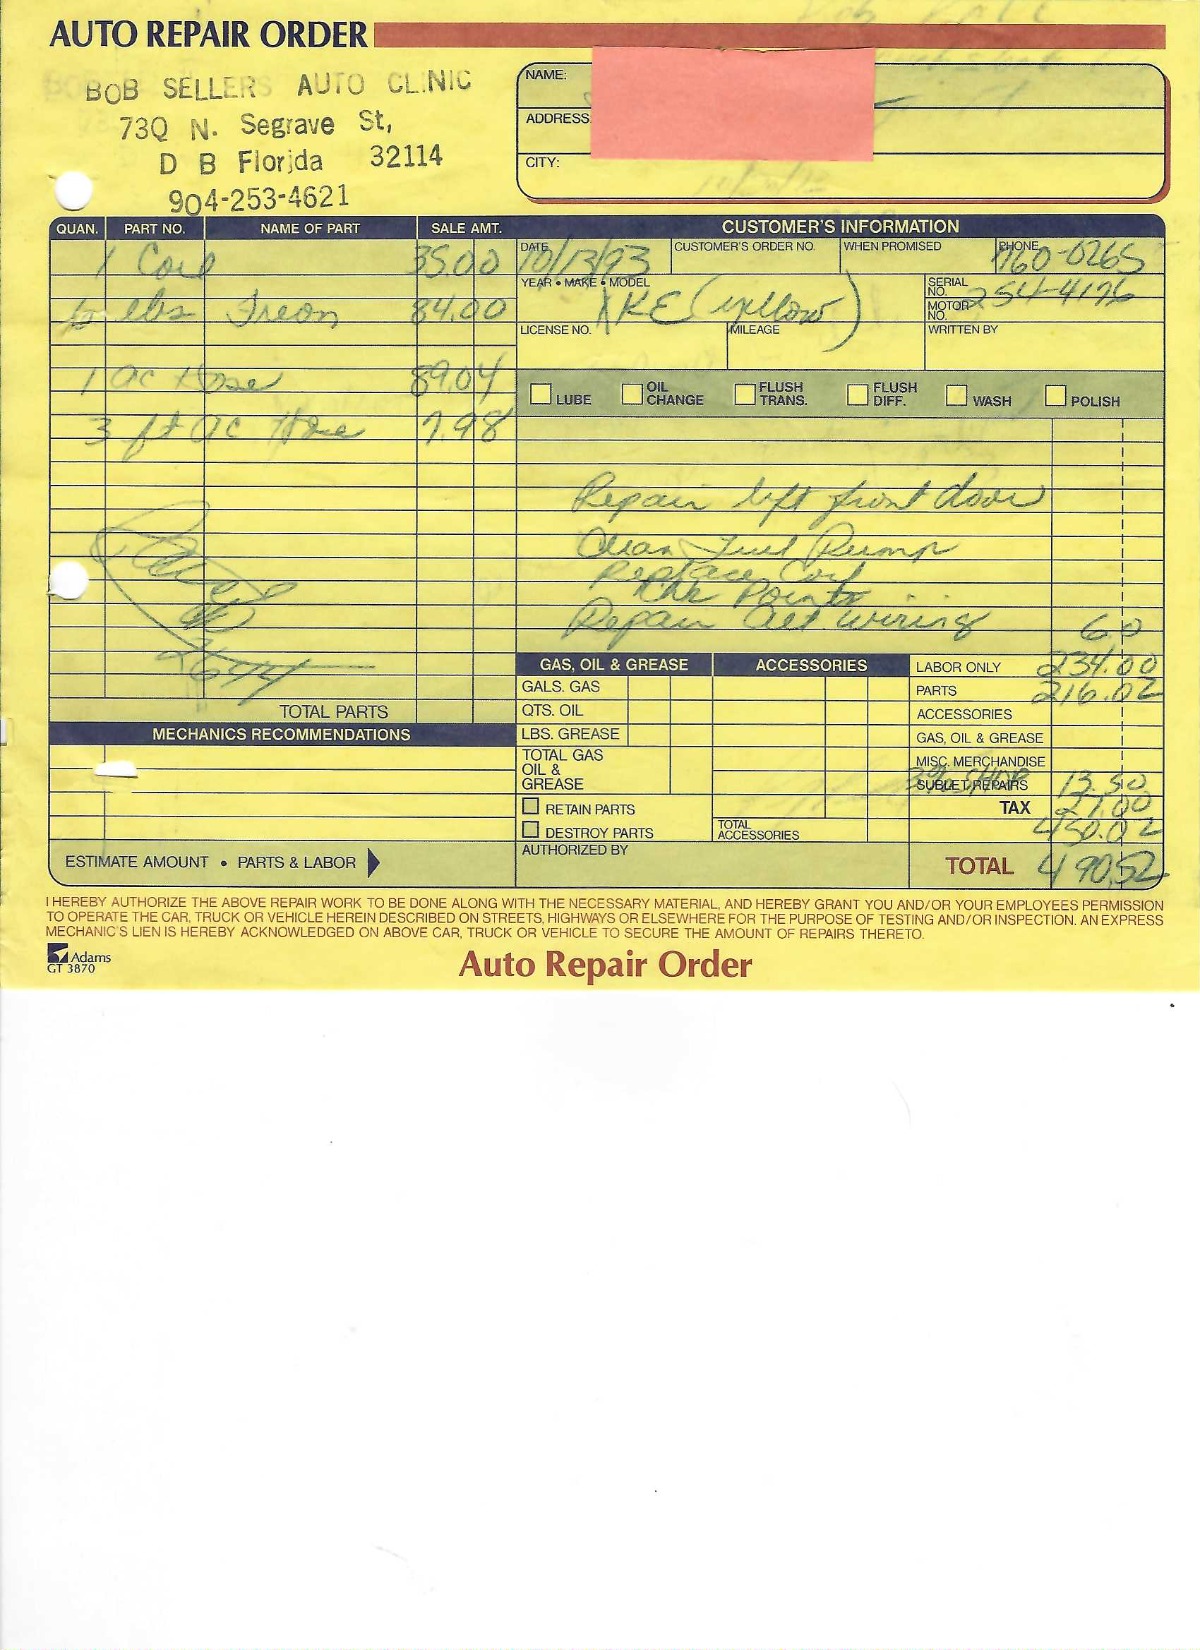 AUTO REPAIR ORDER
BOB SELLERS AUTO CLINIC
730 N. Segrave St,
D B Florida 32114
904-253-4621
NAME:
ADDRESS:
CITY:
QUAN. PART NO. NAME OF PART SALE AMT.
CUSTOMER'S INFORMATION
DATE 10/13/93 CUSTOMER'S ORDER NO. WHEN PROMISED PHONE 760-0265
1 Coil 35.00
YEAR • MAKE • MODEL XKE (yellow)
SERIAL NO.
MOTOR NO. 254-4176
lbs Freon 84.00
LICENSE NO. MILEAGE WRITTEN BY
1 ac Hose 89.04
3 ft ac Hose 7.98
LUBE OIL CHANGE FLUSH TRANS. FLUSH DIFF. WASH POLISH
Repair left front door
Clean Fuel Pump
Replace Coil
Points
Repair Alt. wiring 60
TOTAL PARTS
MECHANICS RECOMMENDATIONS
ESTIMATE AMOUNT • PARTS & LABOR
GAS, OIL & GREASE ACCESSORIES
GALS. GAS
QTS. OIL
LBS. GREASE
TOTAL GAS OIL & GREASE
RETAIN PARTS
DESTROY PARTS
TOTAL ACCESSORIES
AUTHORIZED BY
LABOR ONLY 234.00
PARTS 216.02
ACCESSORIES
GAS, OIL & GREASE
MISC. MERCHANDISE
SUBLET REPAIRS 3% SHOP 13.50
TAX 27.00
450.02
TOTAL 490.52
I HEREBY AUTHORIZE THE ABOVE REPAIR WORK TO BE DONE ALONG WITH THE NECESSARY MATERIAL, AND HEREBY GRANT YOU AND/OR YOUR EMPLOYEES PERMISSION
TO OPERATE THE CAR, TRUCK OR VEHICLE HEREIN DESCRIBED ON STREETS, HIGHWAYS OR ELSEWHERE FOR THE PURPOSE OF TESTING AND/OR INSPECTION. AN EXPRESS
MECHANIC'S LIEN IS HEREBY ACKNOWLEDGED ON ABOVE CAR, TRUCK OR VEHICLE TO SECURE THE AMOUNT OF REPAIRS THERETO.
Adams
GT 3870
Auto Repair Order